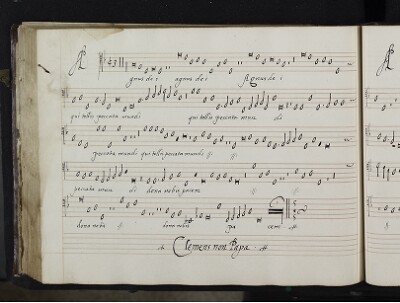 A
gnus de i agnus de i Agnus de i
qui tollis peccata mundi qui tollis peccata mun di
peccata mundi qui tollis peccata mundi
peccata mun di dona nobis pacem
dona nobis dona nobis pa cem
Clemens non Papa